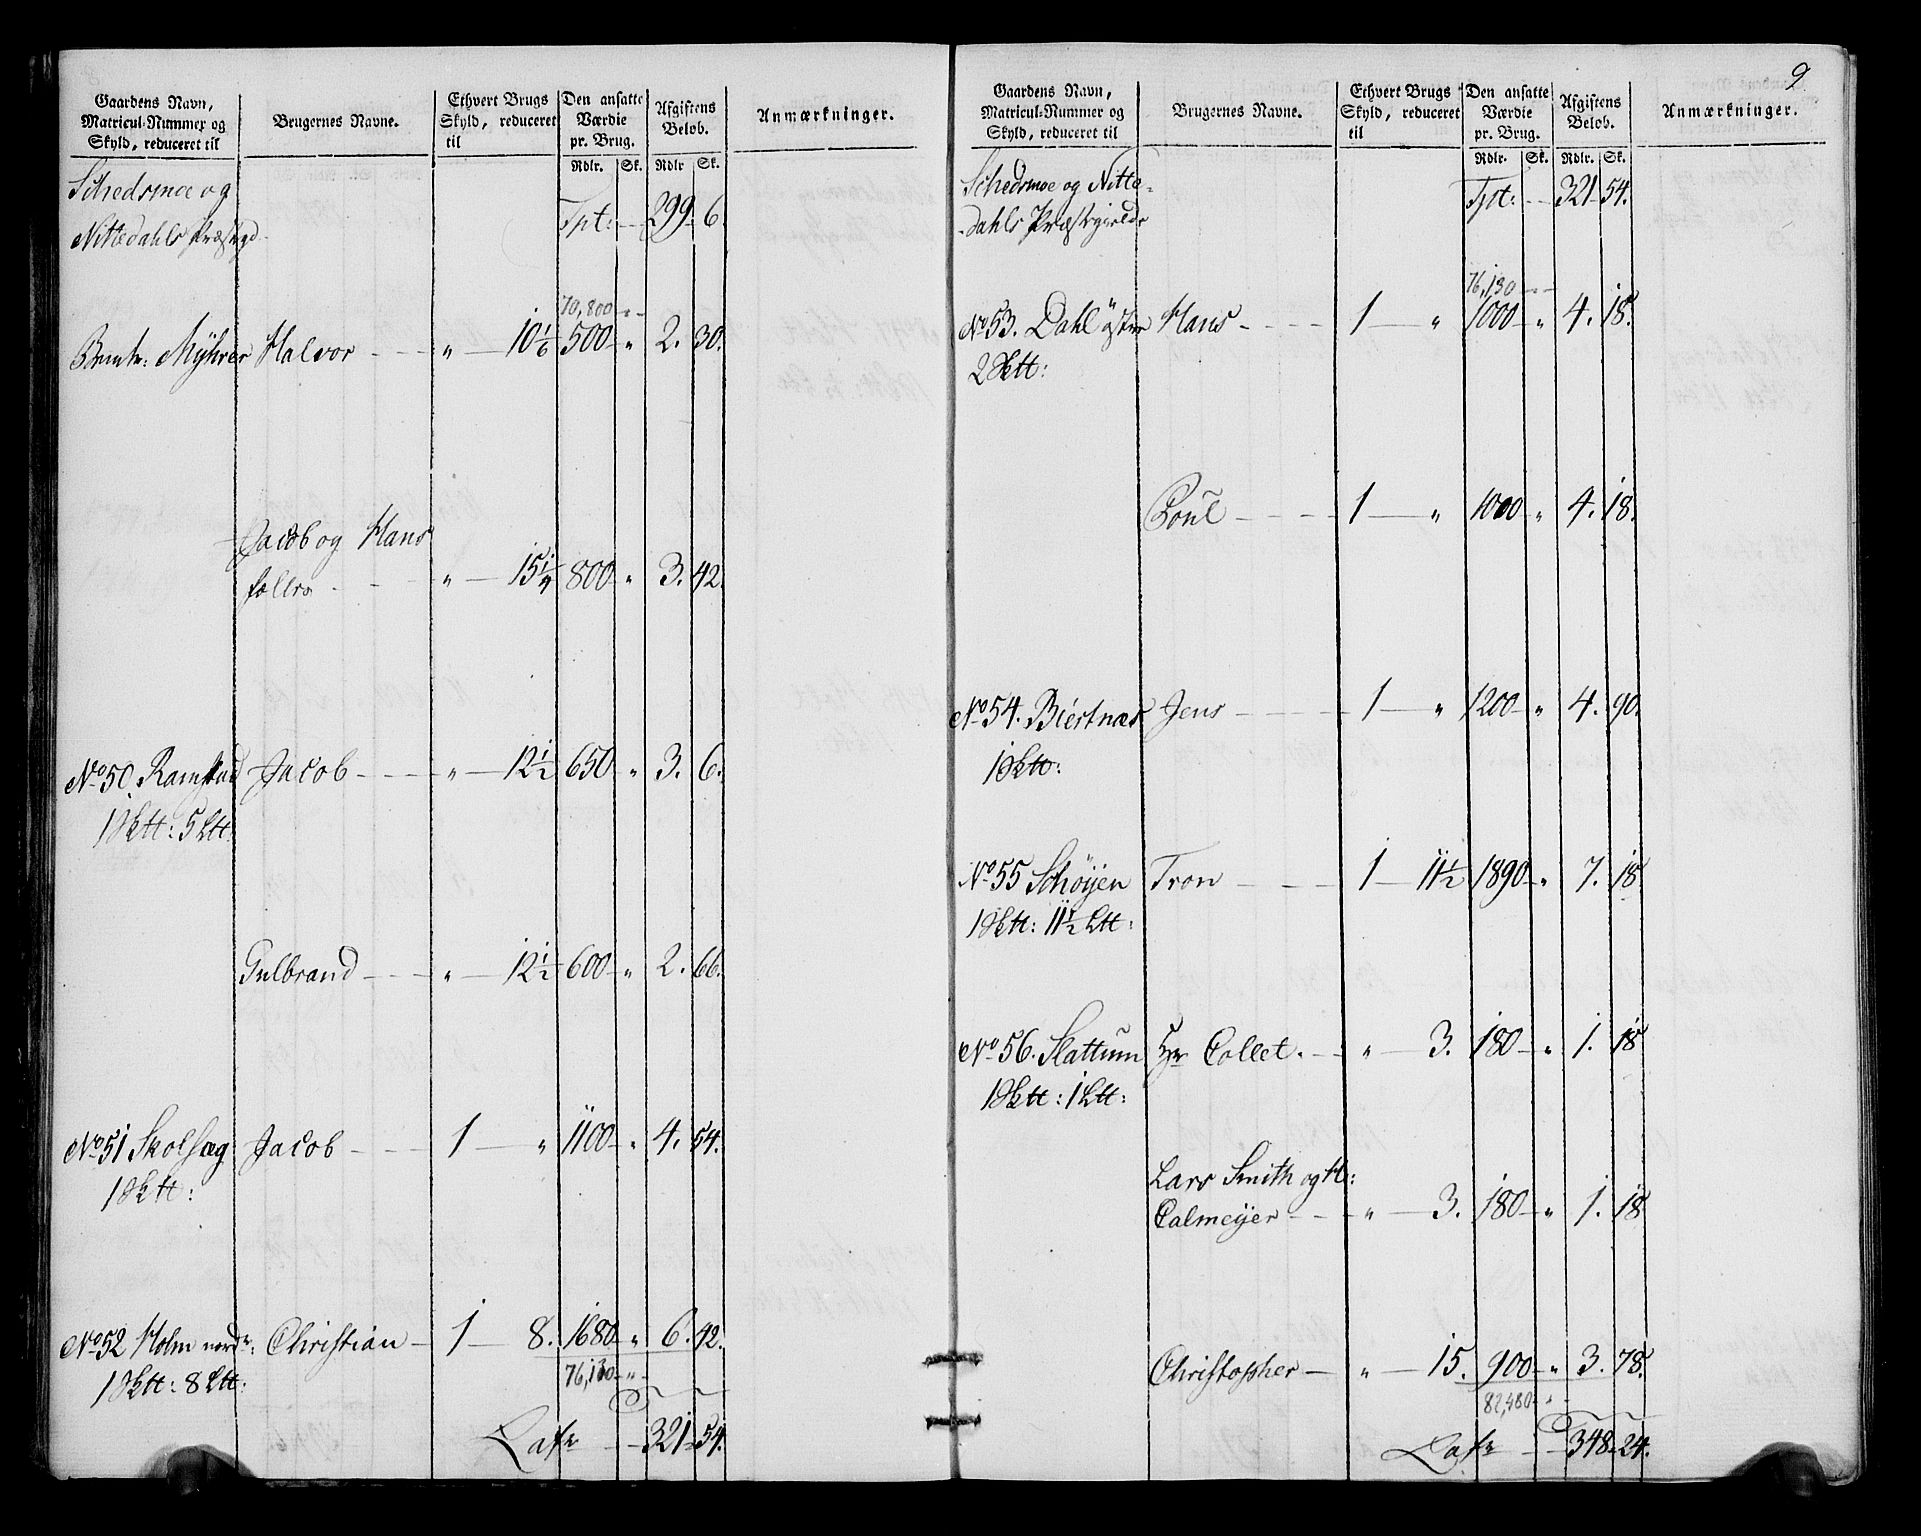 Gaardens Navn, Matricul-Nummer og Skyld, reduceret til
Brugernes Navne.
Ethvert Brugs Skyld, reduceret til
Den ansatte Værdie pr. Brug.
Afgiftens Beløb.
Anmærkninger.
Rdlr. Sk. Rdlr Sk.
Schedsmoe og Tpt: 299. 6.
Nittedahls Præstgd
70,800
Bmte: Myhrer Halvor " 10 1/6 500 " 2. 30.
Jacob og Hans
fælles " 15 1/4 800 " 3. 42.
No 50. Ramstad Jacob " 12 1/2 650 " 3. 6.
1 Sktt: 5 Ltt:
Gulbrand " 12 1/2 600 " 2. 66.
No 51 Skolsæg Jacob 1 " 1100 " 4. 54.
1 Sktt:
No 52 Holm nordr: Christian 1 8. 1680 " 6. 42.
1 Sktt: 8 Ltt: 76,130
Lafr 321 54.
9
Gaardens Navn, Matricul-Nummer og Skyld, reduceret til
Brugernes Navne.
Ethvert Brugs Skyld, reduceret til
Den ansatte Værdie pr. Brug.
Afgiftens Beløb.
Anmærkninger.
Rdlr. Sk. Rdlr. Sk.
Schedsmoe og Nitte- Tpt: 321 54.
-dahls Præstegield
76,130
No 53. Dahl øster Hans 1 " 1000 " 4. 18.
2 Sktt:
Poul 1 " 1000 " 4. 18.
No 54. Biertnæs Jens 1 " 1200 " 4. 90.
1 Sktt:
No 55 Schøyen Tron 1 11 1/2 1890 " 7. 18
1 Sktt: 11 1/2 Ltt:
No 56. Slattum Hr Collet. " 3. 180 " 1. 18
1 Sktt: 1 Ltt:
Lars Smith og H:
Calmeyer " 3. 180 " 1. 18
Christopher " 15. 900 " 3. 78.
82,480
Lafr 348. 24.